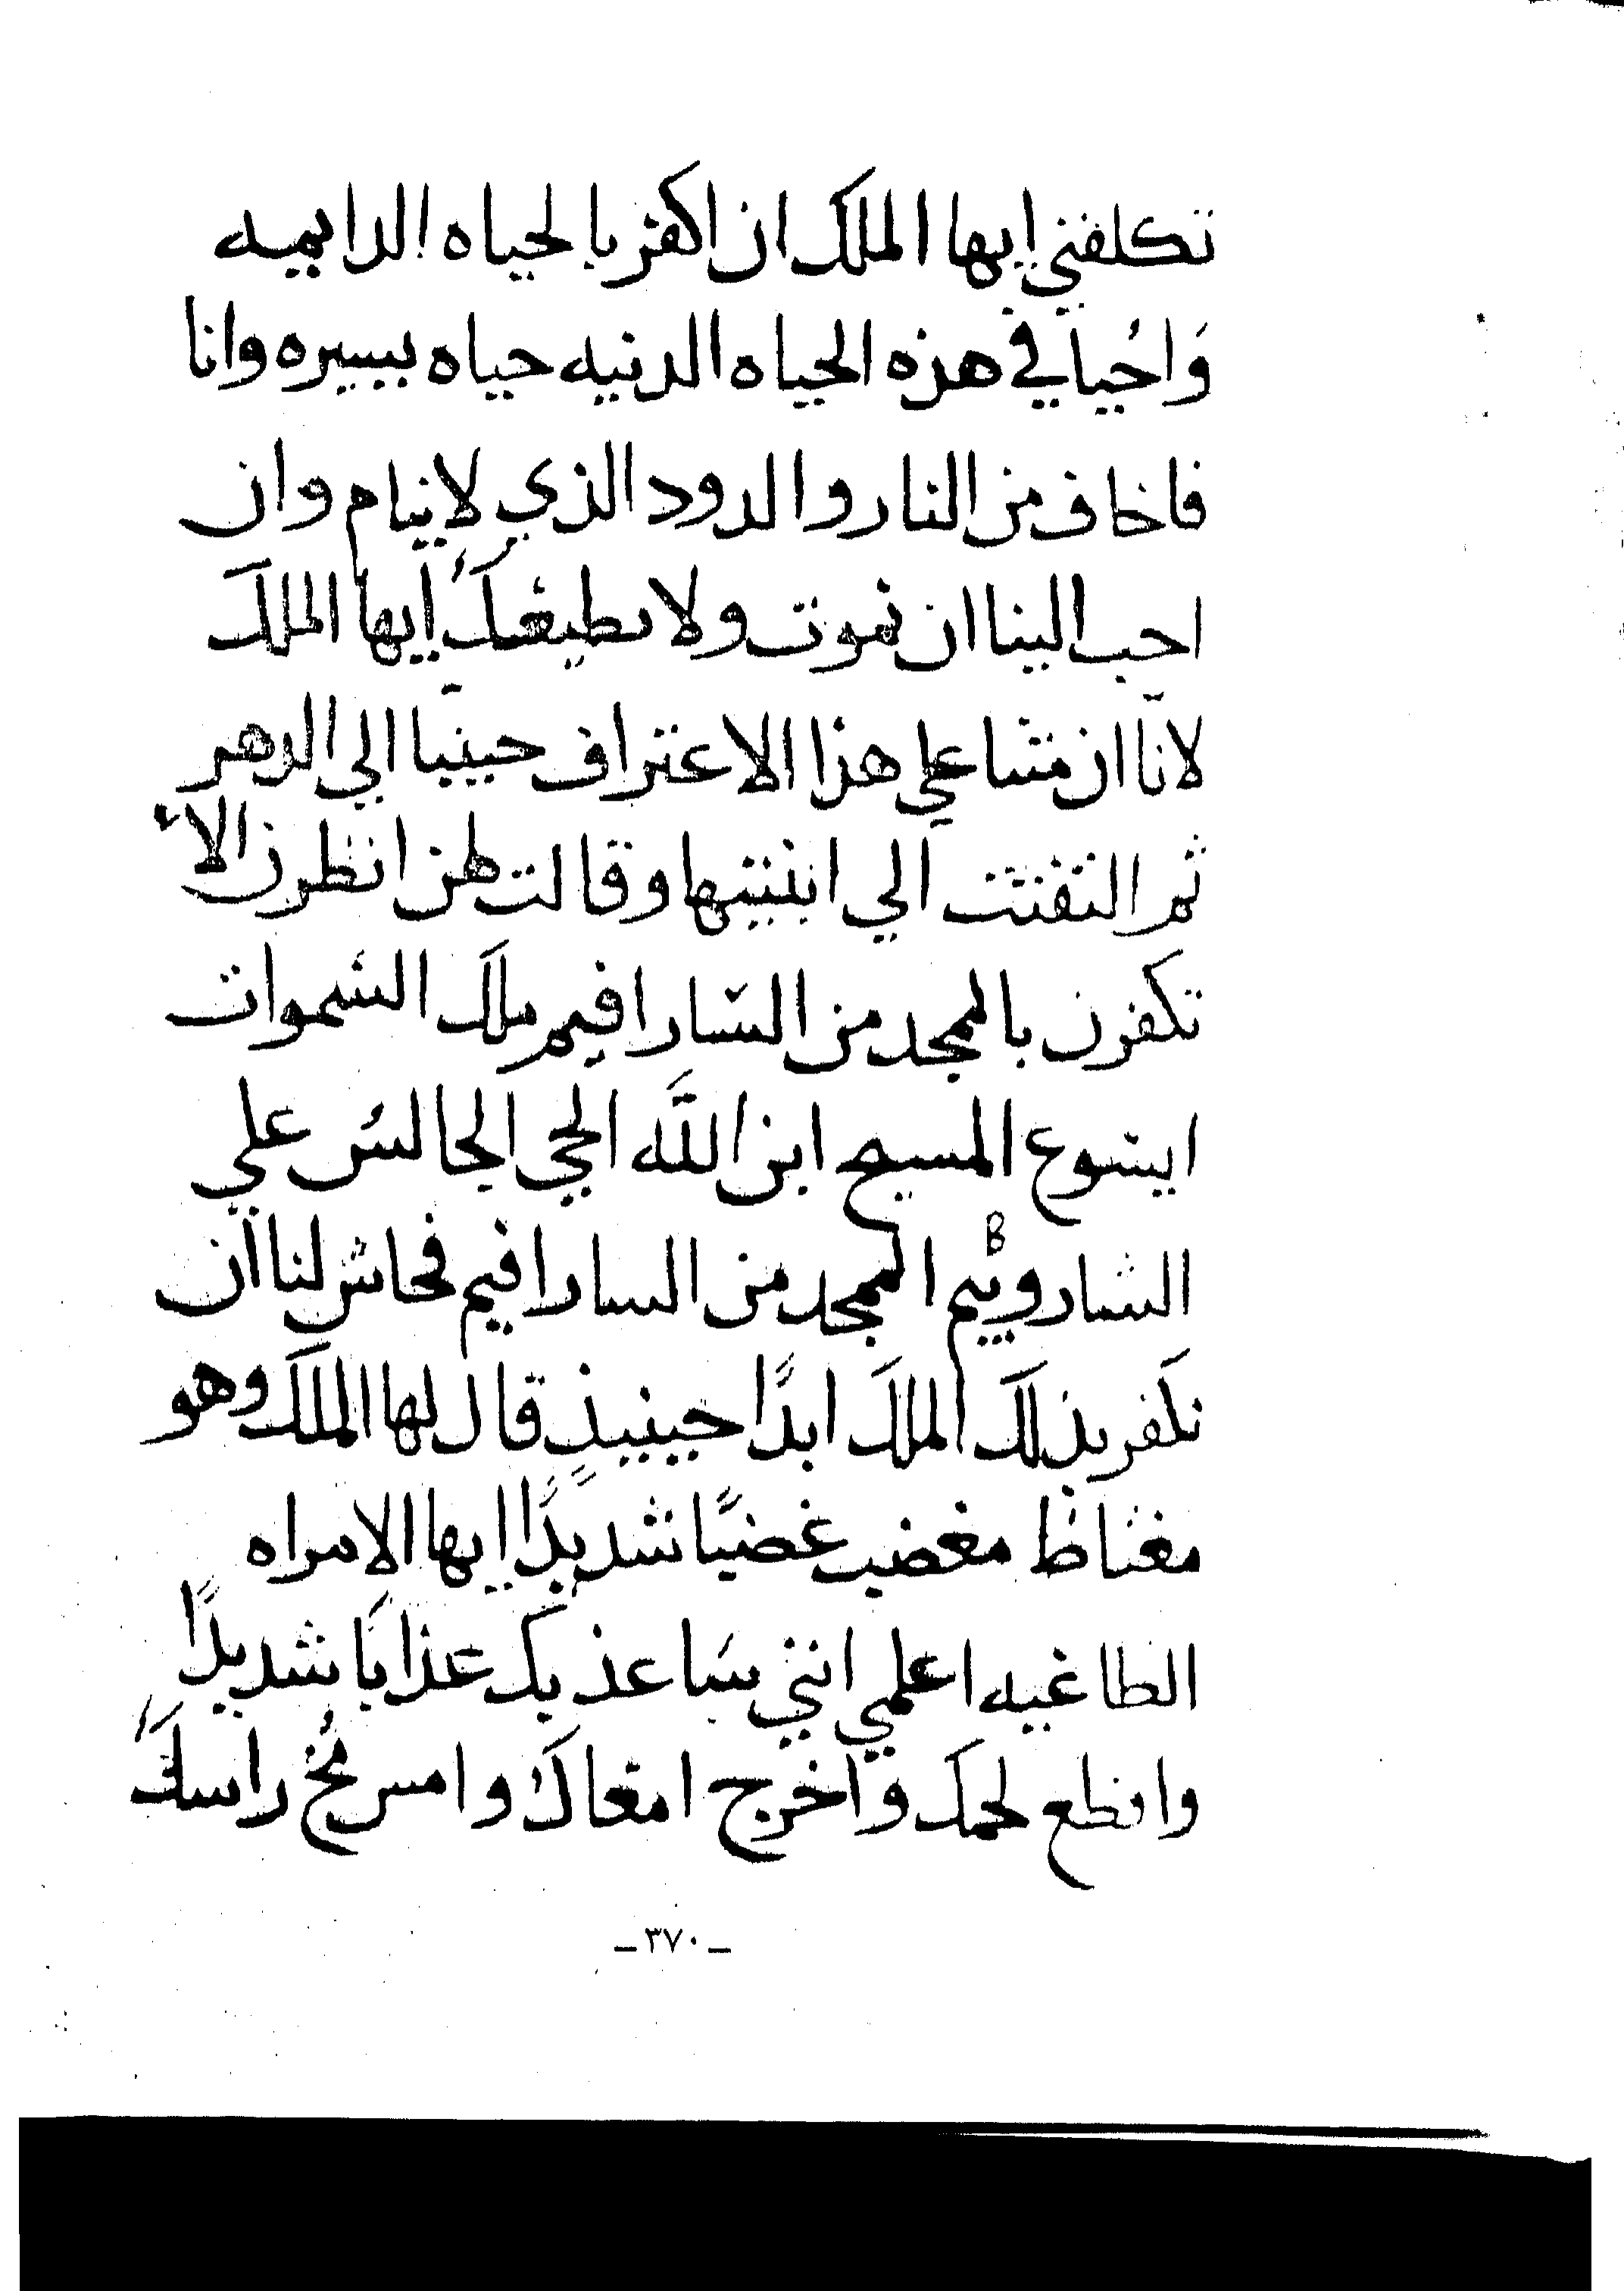 تكلفني ايها الملك ان اكفر بالحياه الدايميه
وَاحُيا في هذه الحياه الدنيه حياه يسيره وانا
فاخاف من النار والدود الذي لاينام وان
احب الينا ان نموت ولا نطيعك ايها الملك
لانا ان متنا علي هذا الاعتراف حيينا الي الدهر
ثم التفتت الي ابنتيها وقالت لهن انظرن الا
تكفرن بالممجد من السارافيم ملك السموات
ايسوع المسيح ابن اللَّه الحي الجالس علي
الشاروبيم الممجد من السارافيم فحاش لنا ان
نكفر بذلك الملك ابدًا حينيذ قال لها الملك وهو
مغتاظ مغضب غضبًا شديدًا ايها الامراه
الطاغيه اعلمي انني ساعذبك عذابًا شديدًا
واقطع لحمك واخرج امعاك وامرس مُخ راسك
ـ ٣٧٠ ـ